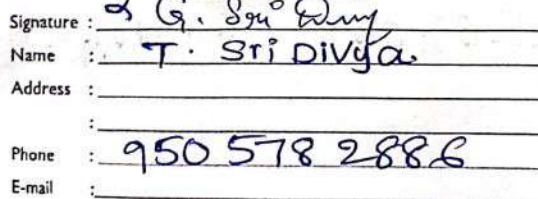 Signature : G. Sri
Name : T. Sri Divya
Address :
:
Phone : 950 578 2886
E-mail :